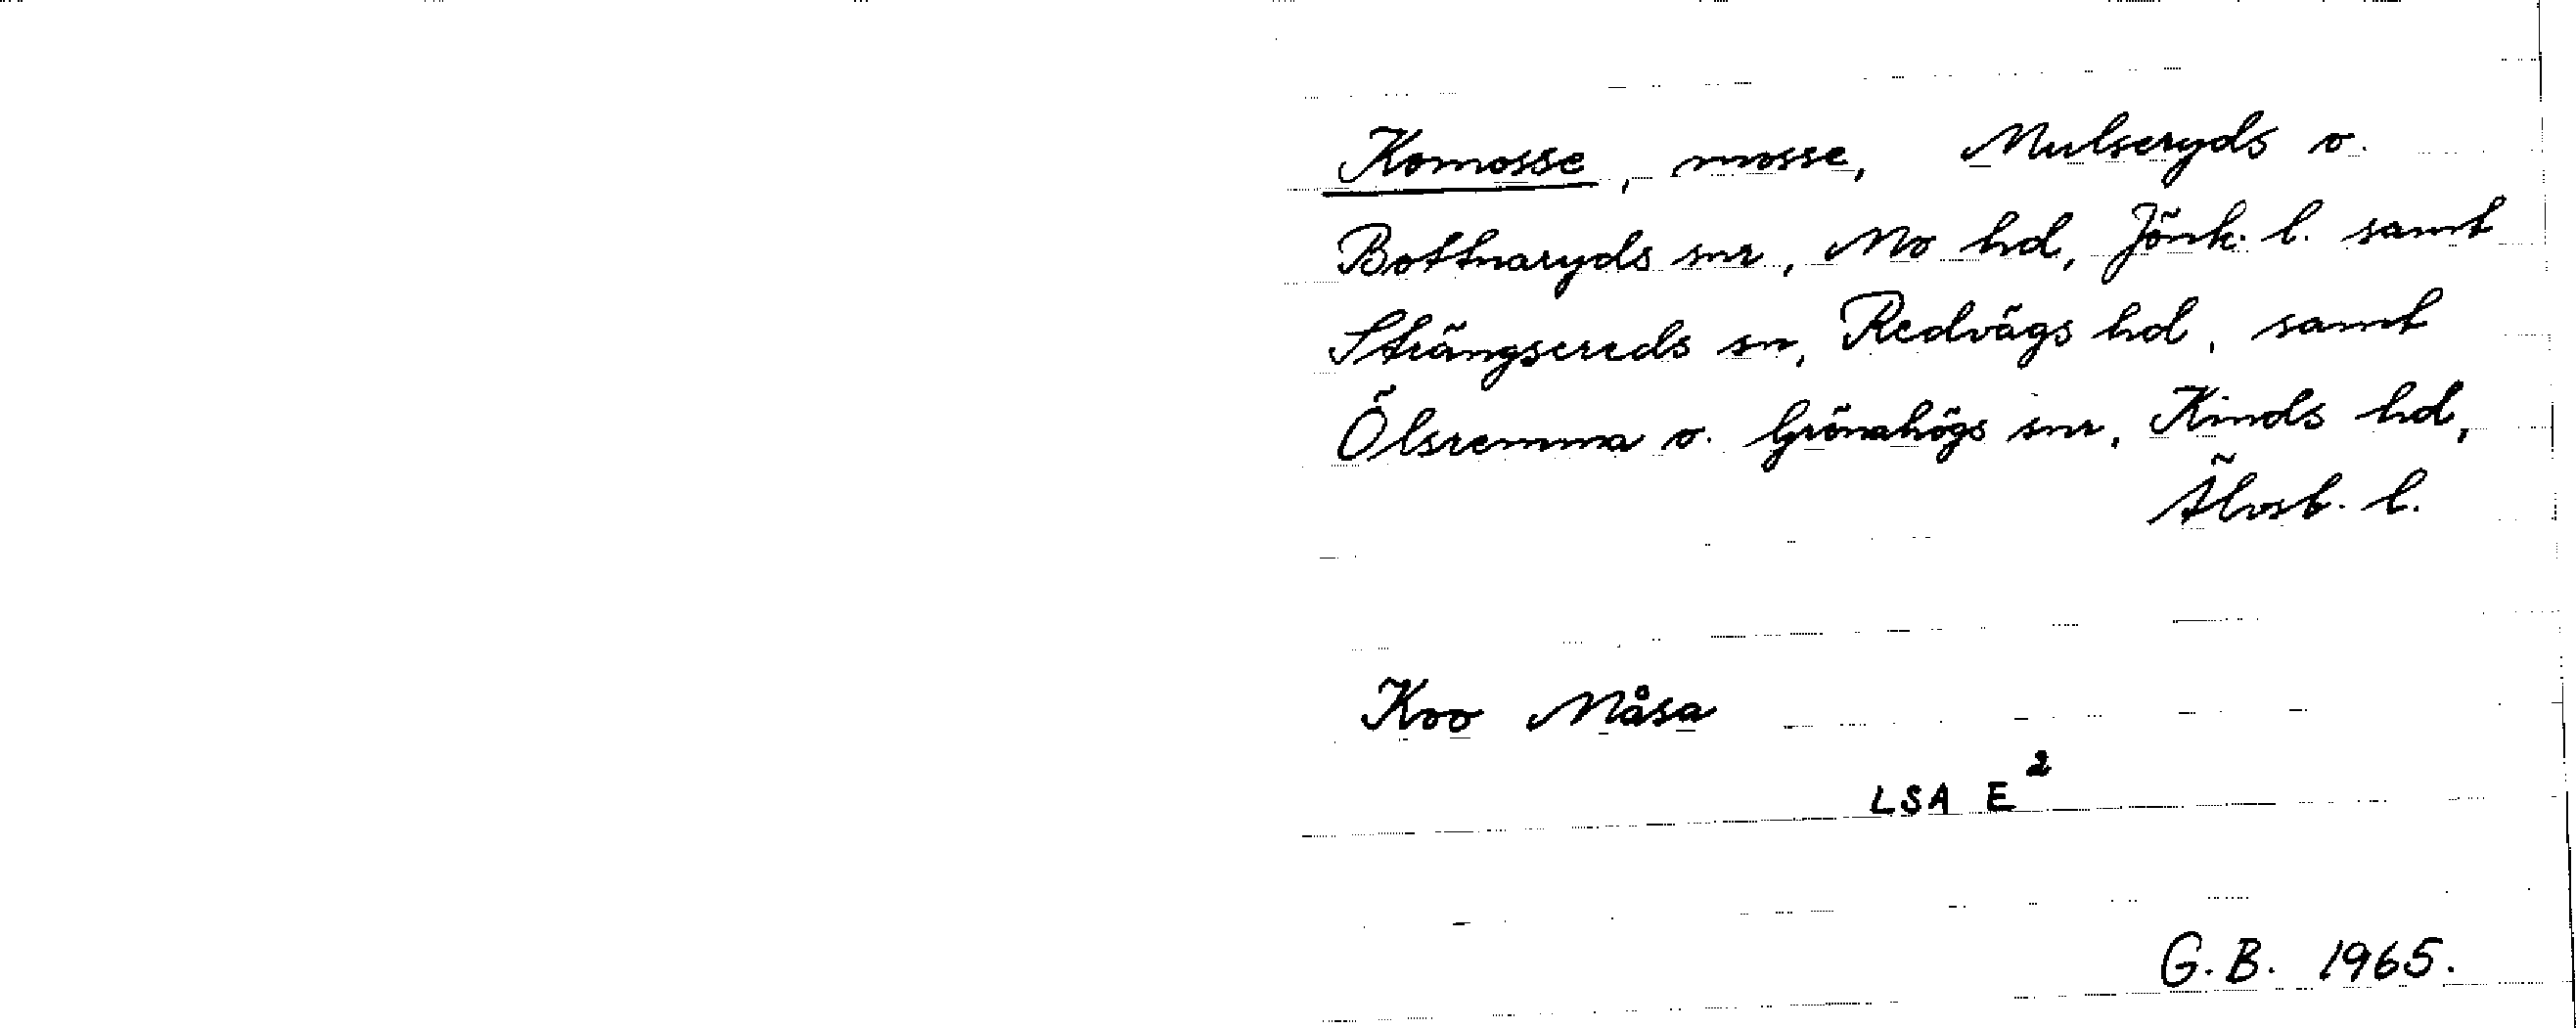 Komosse, mosse, Mulseryds o.
Bottnaryds snr, Mo hd, Jönk. l. samt
Strängsereds sn, Redvägs hd, samt
Ölsremma o. Grönahögs snr, Kinds hd,
Älvsb. l.
Koo Måsa
LSA E²
G.B. 1965.